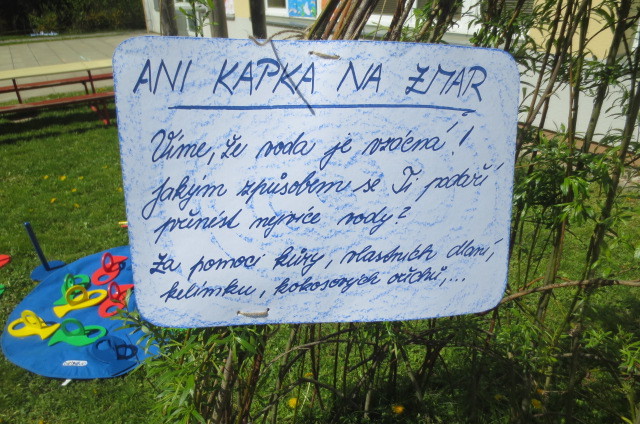 ANI KAPKA NA ZMAR
Víme, že voda je vzácná!
Jakým způsobem se Ti podaří
přenést nejvíce vody?
Za pomoci kůry, vlastních dlaní,
kelímku, kokosových ořechů,...